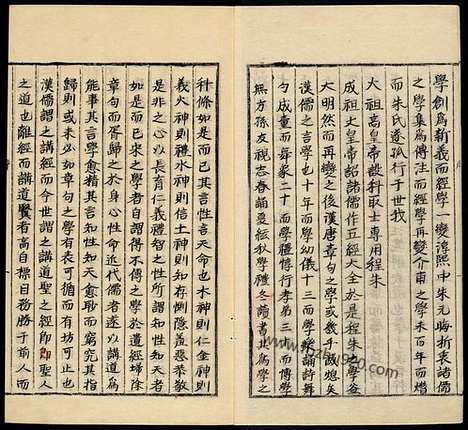 學創爲新義而經學一變淳熙中朱元晦折衷諸儒
之學集爲傳注而經學再變介甫之學未百年而熄
而朱氏遂孤行于世我
太祖高皇帝設科取士專用程朱
成祖文皇帝詔諸儒作五經大全於是程朱之學益
大明然而再變之後漢唐章句之學或幾乎滅熄矣
漢儒之言學也十年而學幼儀十三而學樂誦詩舞
勺成童而舞象二十而學禮惇行孝弟三十而博學
無方孫友視志春誦夏絃秋學禮冬讀書其爲學之
科條如是而已其言性言天命也木神則仁金神則
義火神則禮水神則信土神則知存惻隱羞惡恭敬
是非之心以長育仁義禮智之性如是而知性知天者
如是而已宋之學者自謂得不傳之學於遺經掃除
章句而胥歸之於身心性命近代儒者遂以講道爲
能事其言學愈精其言知性知天愈眇而窮究其指
歸則或未必如章句之學有表可循而有坊可止也
漢儒謂之講經而今世謂之講道聖之經即聖人
之道也離經而講道賢者高自標目務勝于前人而